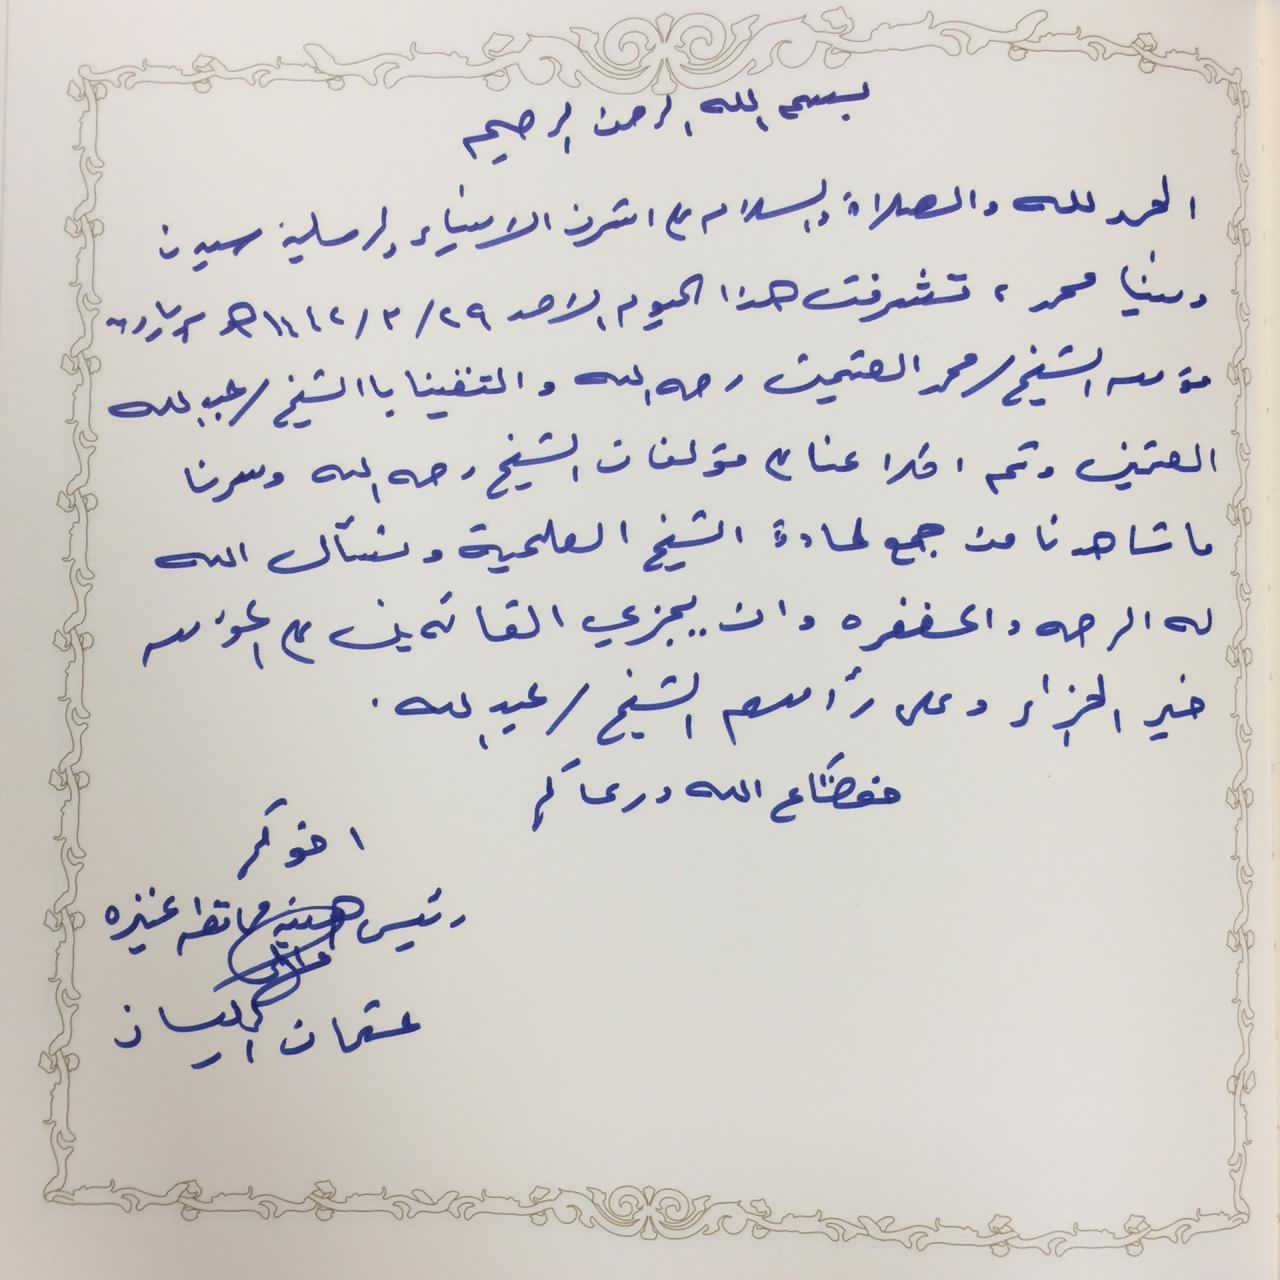 بسم الله الرحمن الرحيم
الحمد لله والصلاة والسلام على اشرف الانبياء والمرسلين سيدنا
ونبينا محمد ، تشرفت هذا اليوم الاحد ٢٩/٣/ هـ بزيارة
مؤسسه الشيخ/ محمد العثيمين رحمه الله والتقينا باالشيخ/ عبدالله
العثيمين وتم اطلاعنا على مؤلفات الشيخ رحمه الله وسرنا
ما شاهدنا من جمع لمادة الشيخ العلمية ونسأل الله
له الرحمه والمغفره وان يجزي القائمين على المؤسسه
خير الجزاء وعلى رأسهم الشيخ/ عبدالله .
حفظكم الله ورعاكم
اخوكم
رئيس هيئة محافظه عنيزه
عثمان